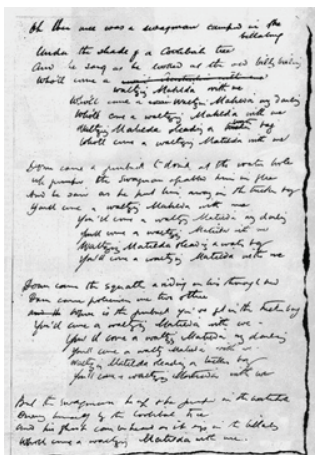 Oh there once was a swagman camped in the
billabong
Under the shade of a Coolibah tree
And he sang as he looked at the old billy boiling
Who'll come a
waltzing Matilda with me
Who'll come a waltzing Matilda my darling
Who'll come a waltzing Matilda with me
Waltzing Matilda leading a bag
Who'll come a waltzing Matilda with me
Down came a jumbuck to drink at the water hole
Up jumped the swagman &amp; grabbed him in glee
And he said as he put him away in the tucker bag
You'll come a waltzing Matilda with me
You'll come a waltzing Matilda my darling
You'll come a waltzing Matilda with me
Waltzing Matilda leading a water bag
You'll come a waltzing Matilda with me
Down came the Squatter a riding on his thorough bred
Down came policemen one two &amp; three
Whose is the jumbuck you've got in the tucker bag
You'll come a waltzing Matilda with me
You'll come a waltzing Matilda my darling
You'll come a waltzing Matilda with me
Waltzing Matilda leading a bag
You'll come a waltzing Matilda with me
But the swagman he up &amp; he jumped in the water hole
Drowning himself by the Coolibah tree
And his ghost can be heard as it sings in the billabong
Who'll come a waltzing Matilda with me.